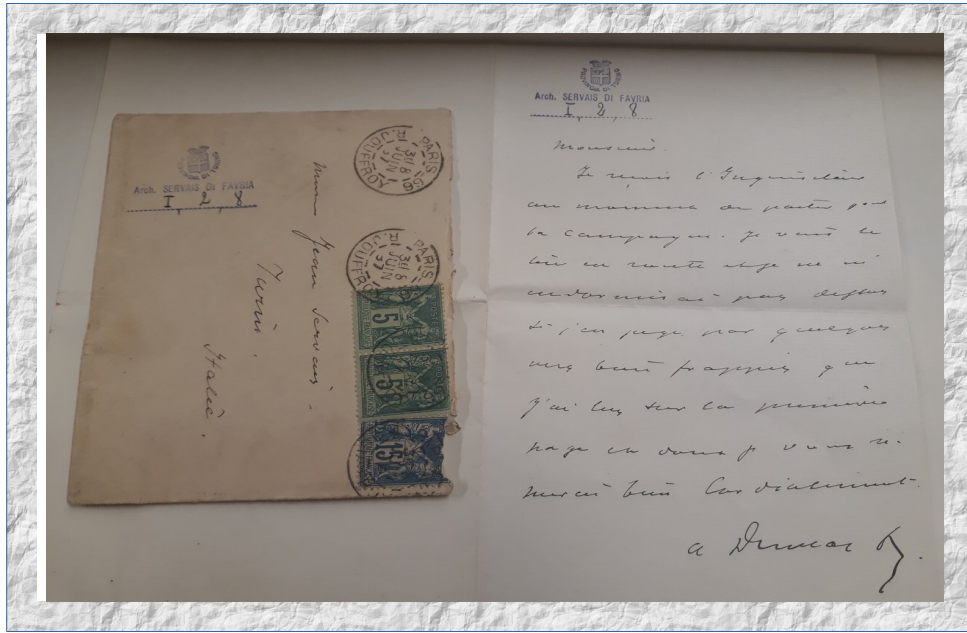 Arch. SERVAIS DI FAVRIA
I 2 8
PARIS
R. JOUFFROY
JUIN
Jean Servais.
Turin.
Italie.
PARIS
R. JOUFFROY
JUIN
5
5
15
Arch. SERVAIS DI FAVRIA
I 2 8
Monsieur.
Je reçois l'Inquisition
au moment de partir pour
la campagne. Je vais le
lire en route et je ne m'
endormirai pas dessus
si j'en juge par quelques
vers bien frappés que
j'ai lus sur la première
page et dont je vous re-
mercie bien cordialement.
A Dumas f.